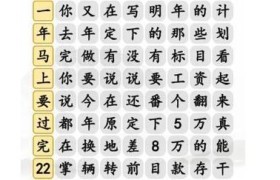 一你又在写明年的计
年去年定下的那些划
马完做有没有标目看
上你要说说要工资起
要说今在还番个翻来
过都年原定下5万真
完在换地差8万的能
22掌辆转前目款存干